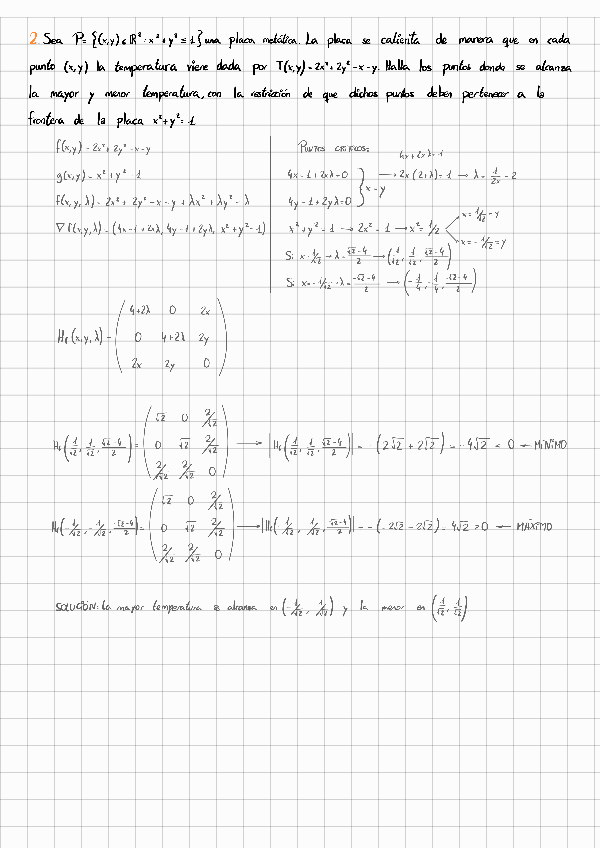 2. Sea P = {(x,y) ∈ ℝ² : x² + y² ≤ 1} una placa metálica. La placa se calienta de manera que en cada
punto (x,y) la temperatura viene dada por T(x,y) = 2x² + 2y² - x - y. Halla los puntos donde se alcanza
la mayor y menor temperatura, con la restricción de que dichos puntos deben pertenecer a la
frontera de la placa x² + y² = 1
f(x,y) = 2x² + 2y² - x - y
g(x,y) = x² + y² - 1
f(x,y,λ) = 2x² + 2y² - x - y + λx² + λy² - λ
∇f(x,y,λ) = (4x - 1 + 2xλ, 4y - 1 + 2yλ, x² + y² - 1)
PUNTOS CRÍTICOS:
4x + 2xλ = 1
4x - 1 + 2xλ = 0 → 2x(2+λ) = 1 → λ = 1/2x - 2
x = y
4y - 1 + 2yλ = 0
x² + y² = 1 → 2x² = 1 → x² = 1/2
x = 1/√2 = y
x = -1/√2 = y
Si x = 1/√2 → λ = (√2-4)/2 → (1/√2, 1/√2, (√2-4)/2)
Si x = -1/√2 → λ = (-√2-4)/2 → (-1/4, -1/4, (-√2-4)/2)
Hf(x,y,λ) = (4+2λ 0 2x
0 4+2λ 2y
2x 2y 0)
Hf(1/√2, 1/√2, (√2-4)/2) = (√2 0 2/√2
0 √2 2/√2
2/√2 2/√2 0) → |Hf(1/√2, 1/√2, (√2-4)/2)| = -(2√2 + 2√2) = -4√2 < 0 → MÍNIMO
Hf(-1/√2, -1/√2, (-√2-4)/2) = (-√2 0 2/√2
0 √2 2/√2
2/√2 2/√2 0) → |Hf(1/√2, 1/√2, (-√2-4)/2)| = -(-2√2 - 2√2) = 4√2 > 0 → MÁXIMO
SOLUCIÓN: La mayor temperatura se alcanza en (-1/√2, 1/√2) y la menor en (1/√2, 1/√2)